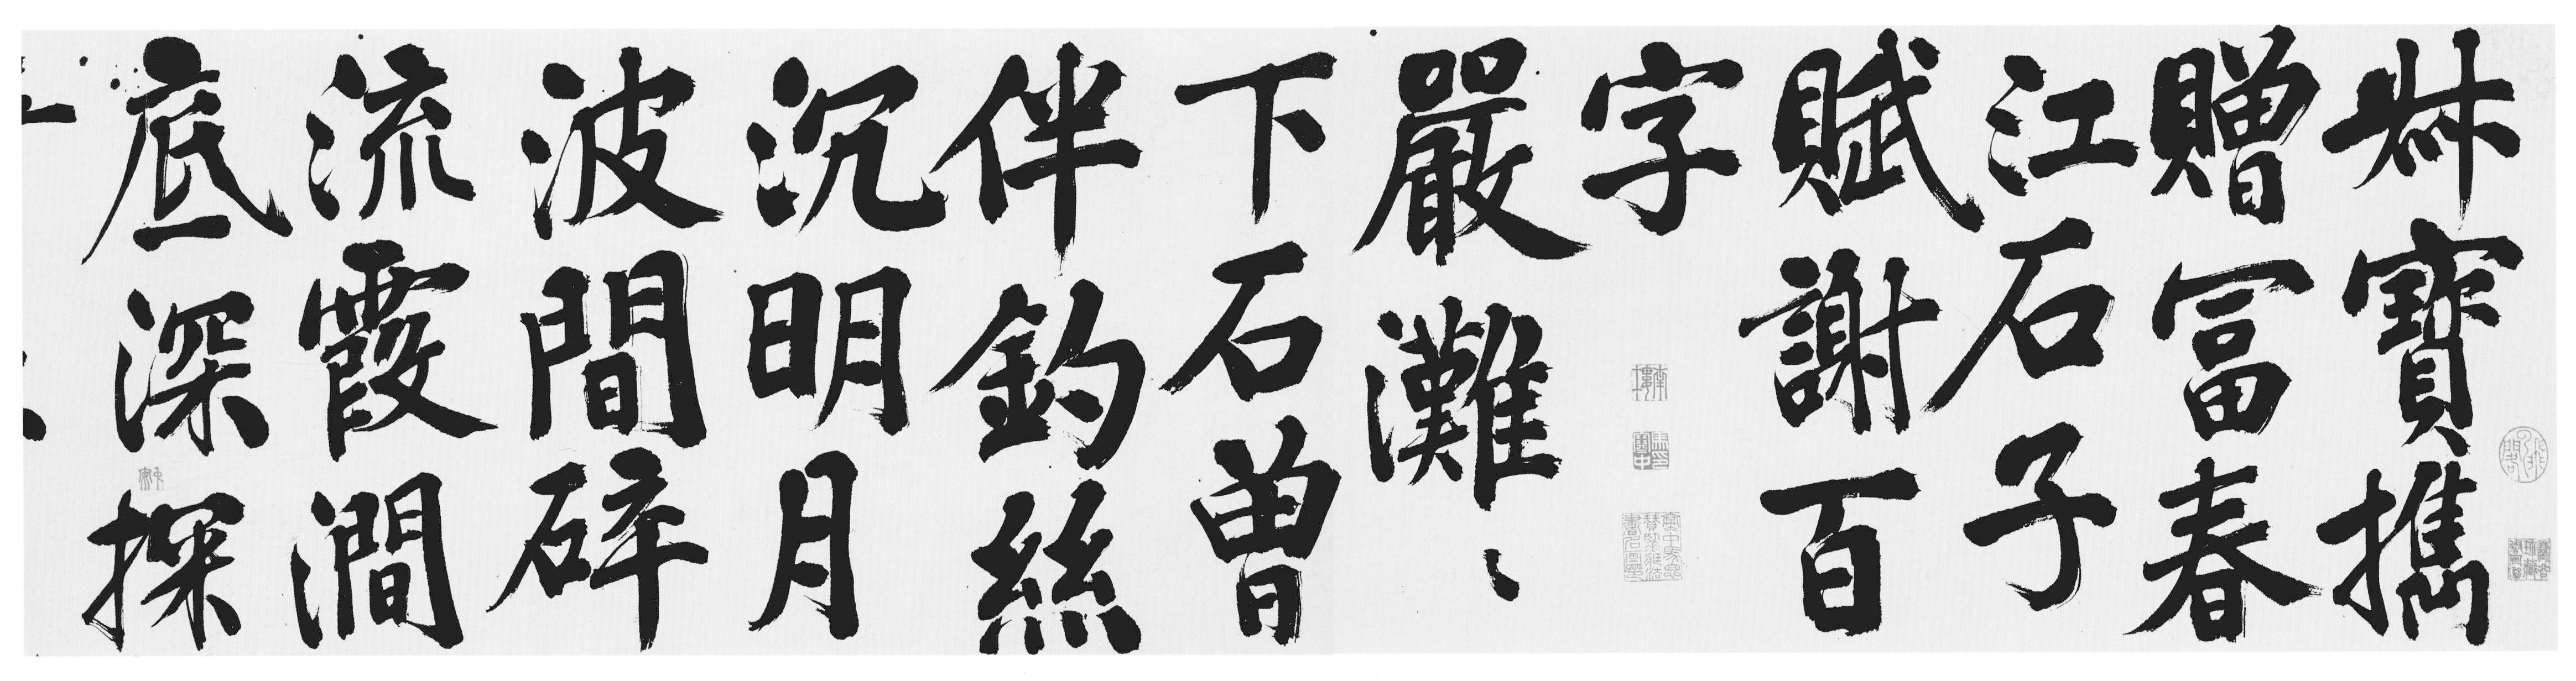 叔寶擕
贈冨春
江石子
賦謝百
字
嚴灘〻
下石曾
伴釣絲
沉明月
波間碎
流霞澗
底深探